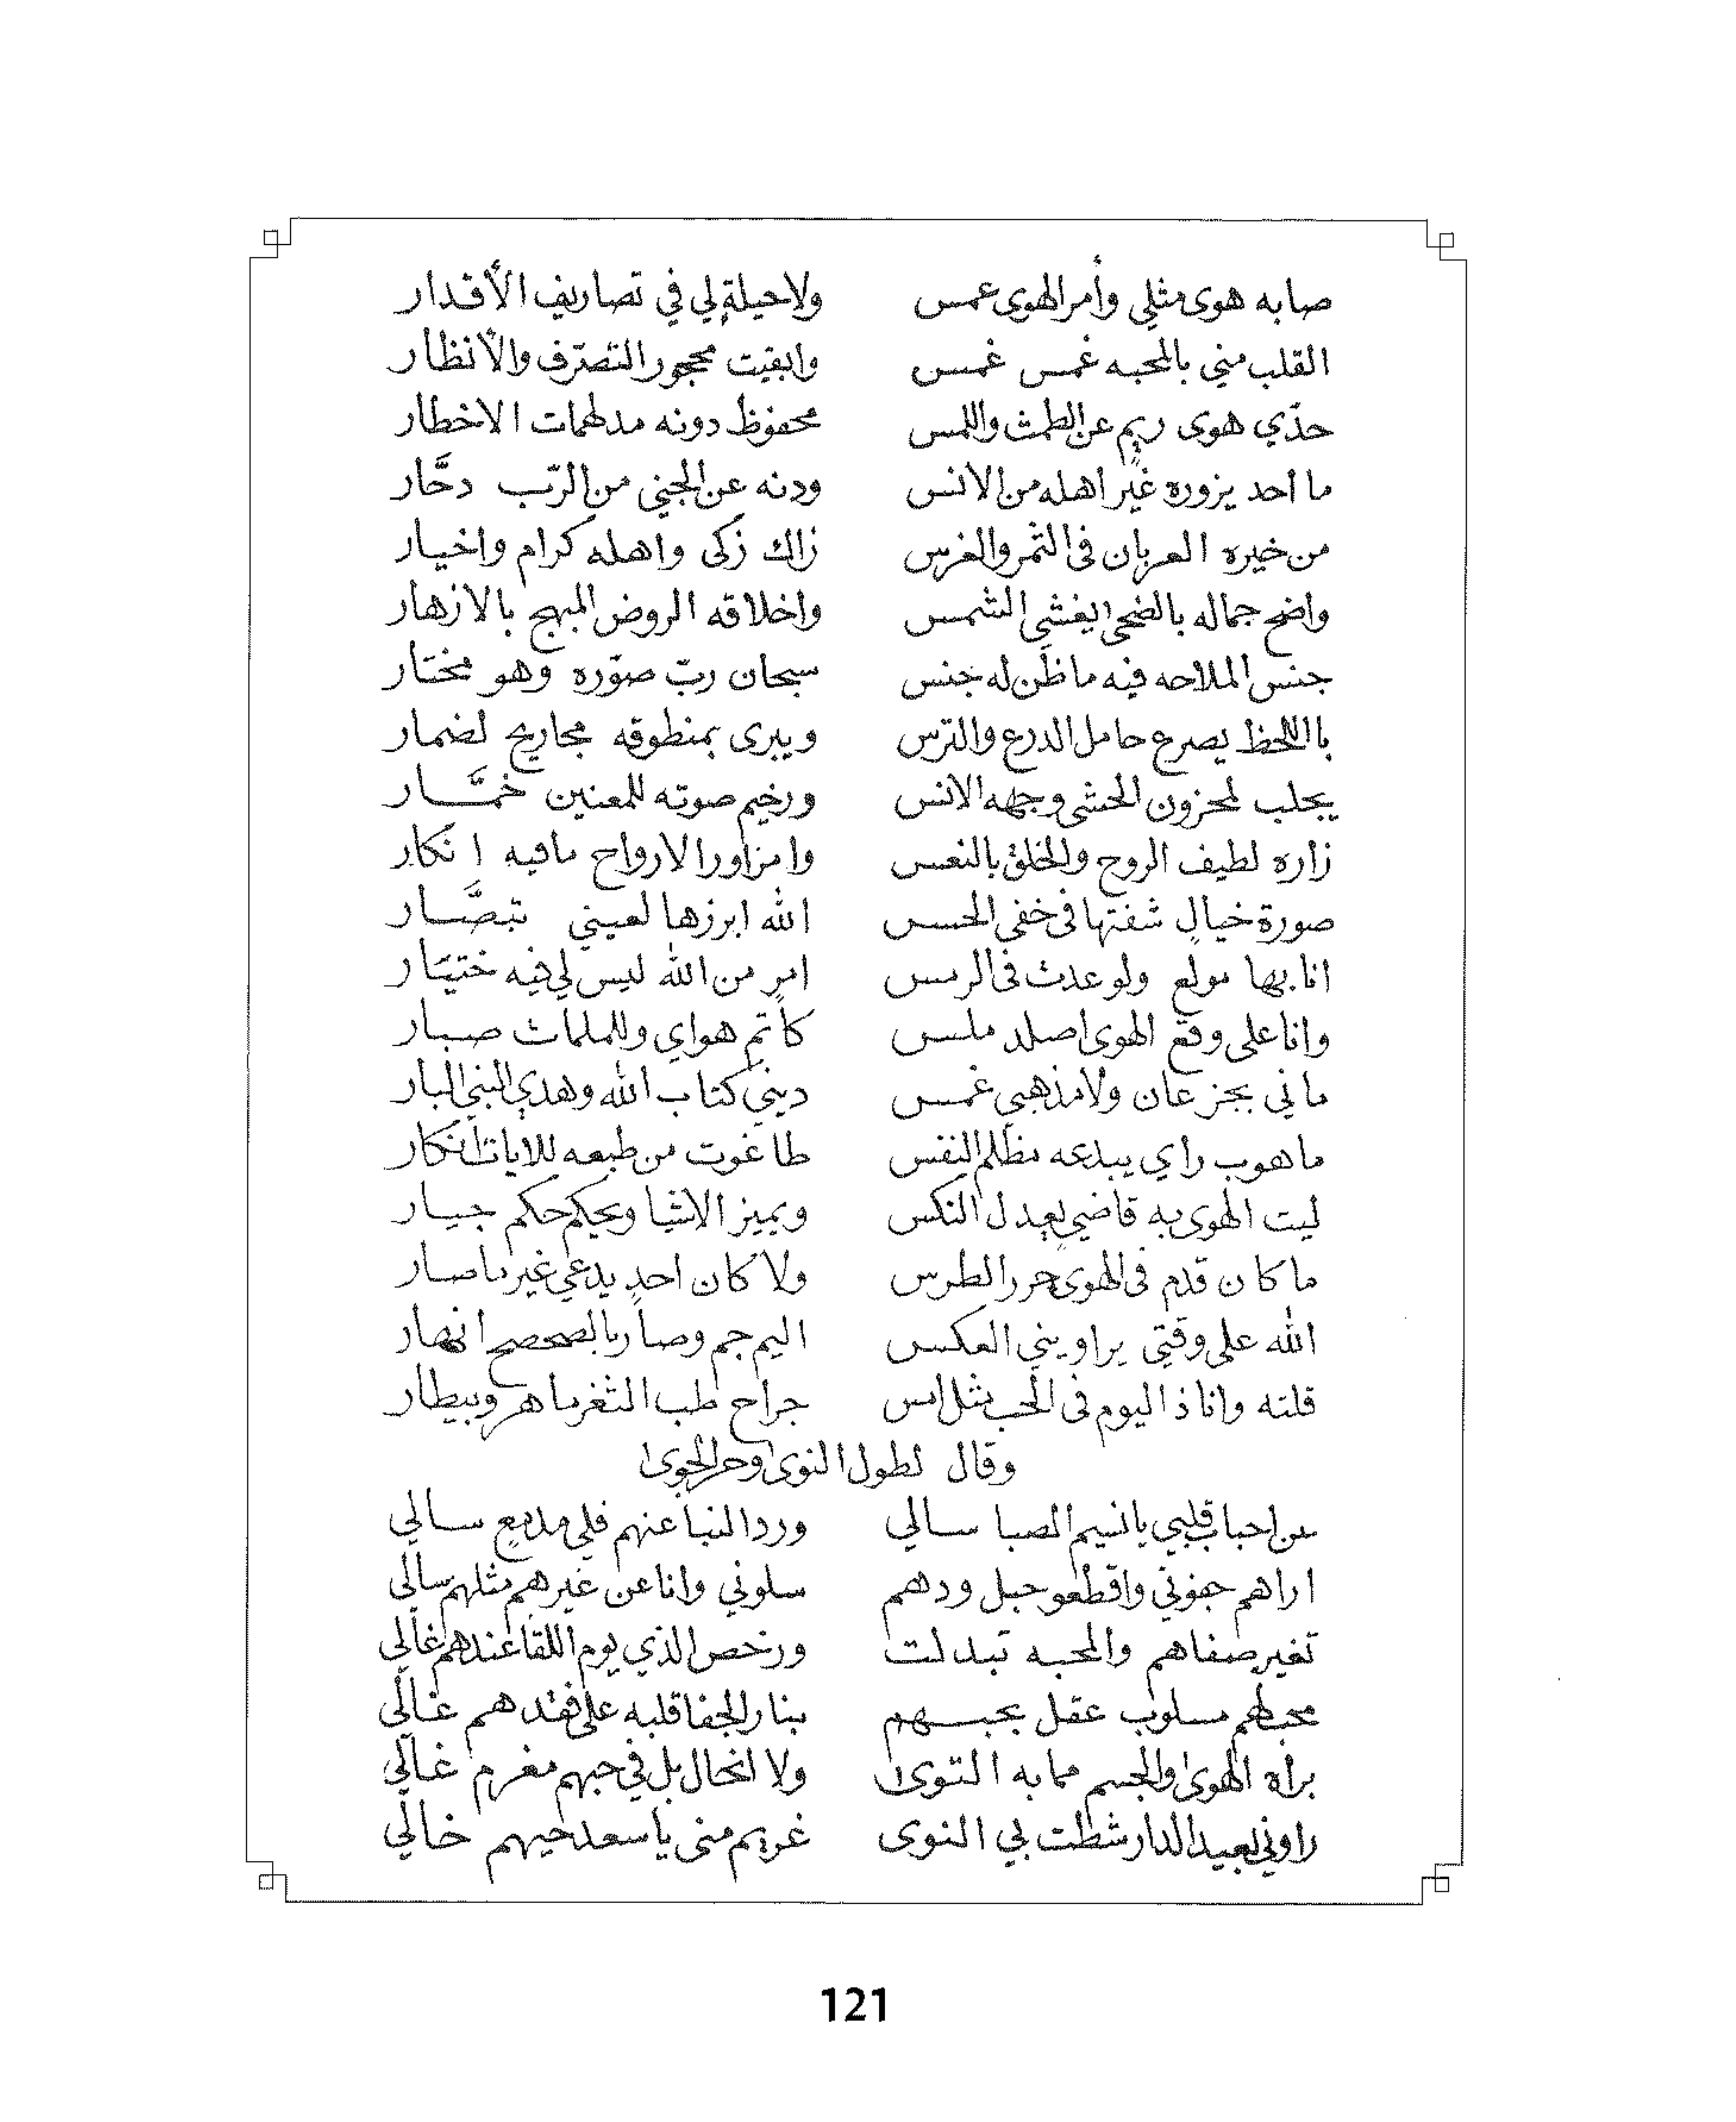 صابه هوى مثلي وأمر الهوى عمس ولا حيلة لي في تصاريف الأقدار
القلب مني بالمحبه غمس غمس وابقيت محجور التصرّف والأنظار
حدّي هوى ريم عن الطمث واللمس محفوظ دونه مدلهمات الاخطار
ما أحد يزوره غير أهله من الانس ودنه عن الجني من الرّب دحَّار
من خيره العربان في الثمر والغرس زاك زكى واهله كرام واخيار
واضح جماله بالضحى يغشي الشمس واخلاقه الروض المبهج بالازهار
جنس الملاحه فيه ما ظن له جنس سبحان ربّ صوّره وهو مختار
باللحظ يصرع حامل الدرع والترس ويبرى بمنطوقه مجاريح لضمار
يجلب لمحزون الحشى وجهه الانس ورخيم صوته للمعنين خمَّار
زاره لطيف الروح والخلق بالنعس وامزاور الارواح مافيه انكار
صورة خيالٍ شفتها في خفى الحس الله ابرزها لعيني تبصَّار
انا بها مولع ولو عدت في الرمس امرٍ من الله ليس لي فيه ختيَار
وانا على وقع الهوى اصلد ملس كاتم هواي وللملمات صبار
ماني بجز عان ولا مذهبي غمس ديني كتاب الله وهدي النبي البار
ما هوب رأي يبدعه مظلم النفس طاغوت من طبعه للايات انكار
ليت الهوى به قاضيٍ يعدل النكس ويميز الاشيا ويحكم حكم جيار
ما كان قدم في الهوى حرر الطرس ولا كان احدٍ يدعي غير ما صار
الله على وقتي يراويني العكس اليم جم وصار بالصحصح انهار
قلته وانا ذا اليوم في الحب مثل امس جراح طب الثغر ماهر وبيطار
وقال لطول النوى وحر الجوى
عن احباب قلبي يا نسيم الصبا سالي ورد النبا عنهم فلي مدمعٍ سالي
اراهم جفوني واقطعو حبل ودهم سلوني وانا عن غيرهم مثلهم سالي
تغير صفاهم والمحبه تبدلت ورخص الذي يوم اللقا عندهم غالي
محبهم مسلوب عقل بحبهم بنار الجفا قلبه على فقدهم غالي
براه الهوى والجسم مما به التوى ولا انحال بل في حبهم مغرم غالي
راوني بعيد الدار شطت بي النوى غريم منى يا سعد حيهم خالي
121